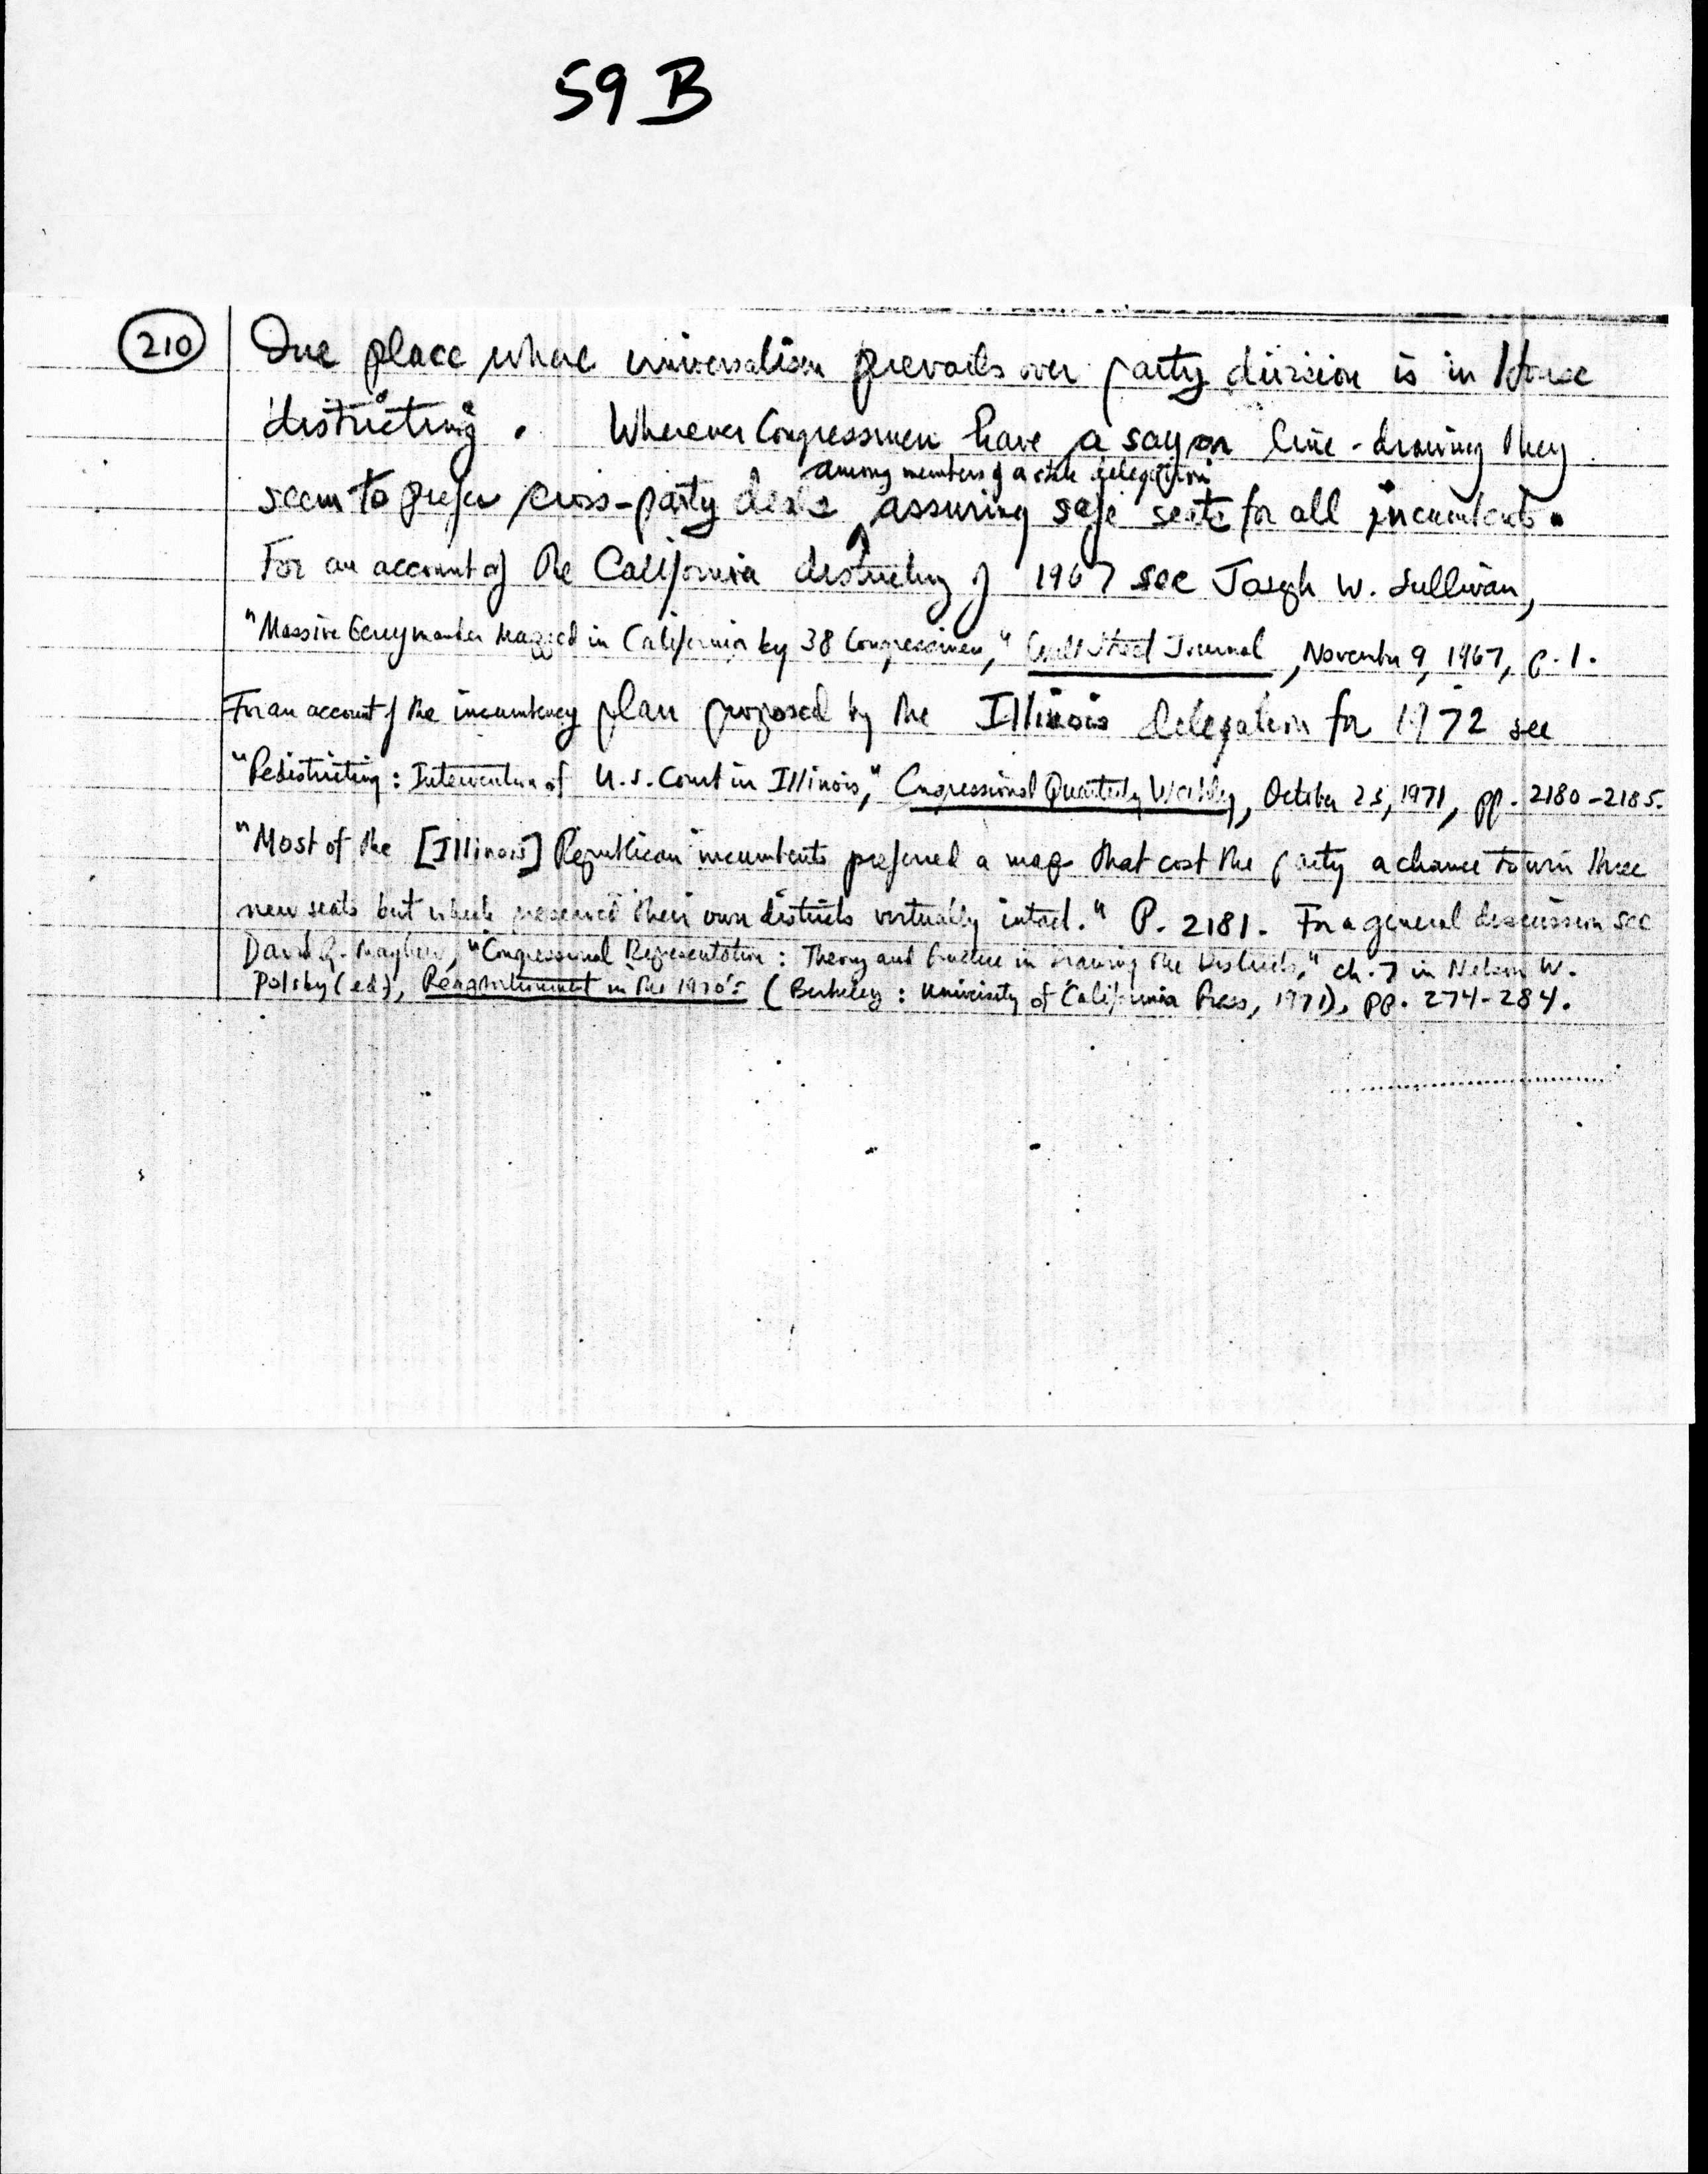 59 B
210
One place where universalism prevails over party division is in House
districting. Wherever Congressmen have a say on line-drawing they
among members of a state delegation
seem to prefer cross-party deals assuring safe seats for all incumbents.
For an account of the California districting of 1967 see Joseph W. Sullivan,
"Massive Gerrymander Mapped in California by 38 Congressmen," Wall Street Journal, November 9, 1967, p. 1.
For an account of the incumbency plan proposed by the Illinois delegation for 1972 see
"Redistricting: Intervention of U.S. Court in Illinois," Congressional Quarterly Weekly, October 23, 1971, pp. 2180-2185.
"Most of the [Illinois] Republican incumbents prefered a map that cost the party a chance to win three
new seats but which preserved their own districts virtually intact." P. 2181. For a general discussion see
David R. Mayhew, "Congressional Representation: Theory and Practice in Drawing the Districts," ch. 7 in Nelson W.
Polsby (ed), Reapportionment in the 1970's (Berkeley: University of California Press, 1971), pp. 274-284.